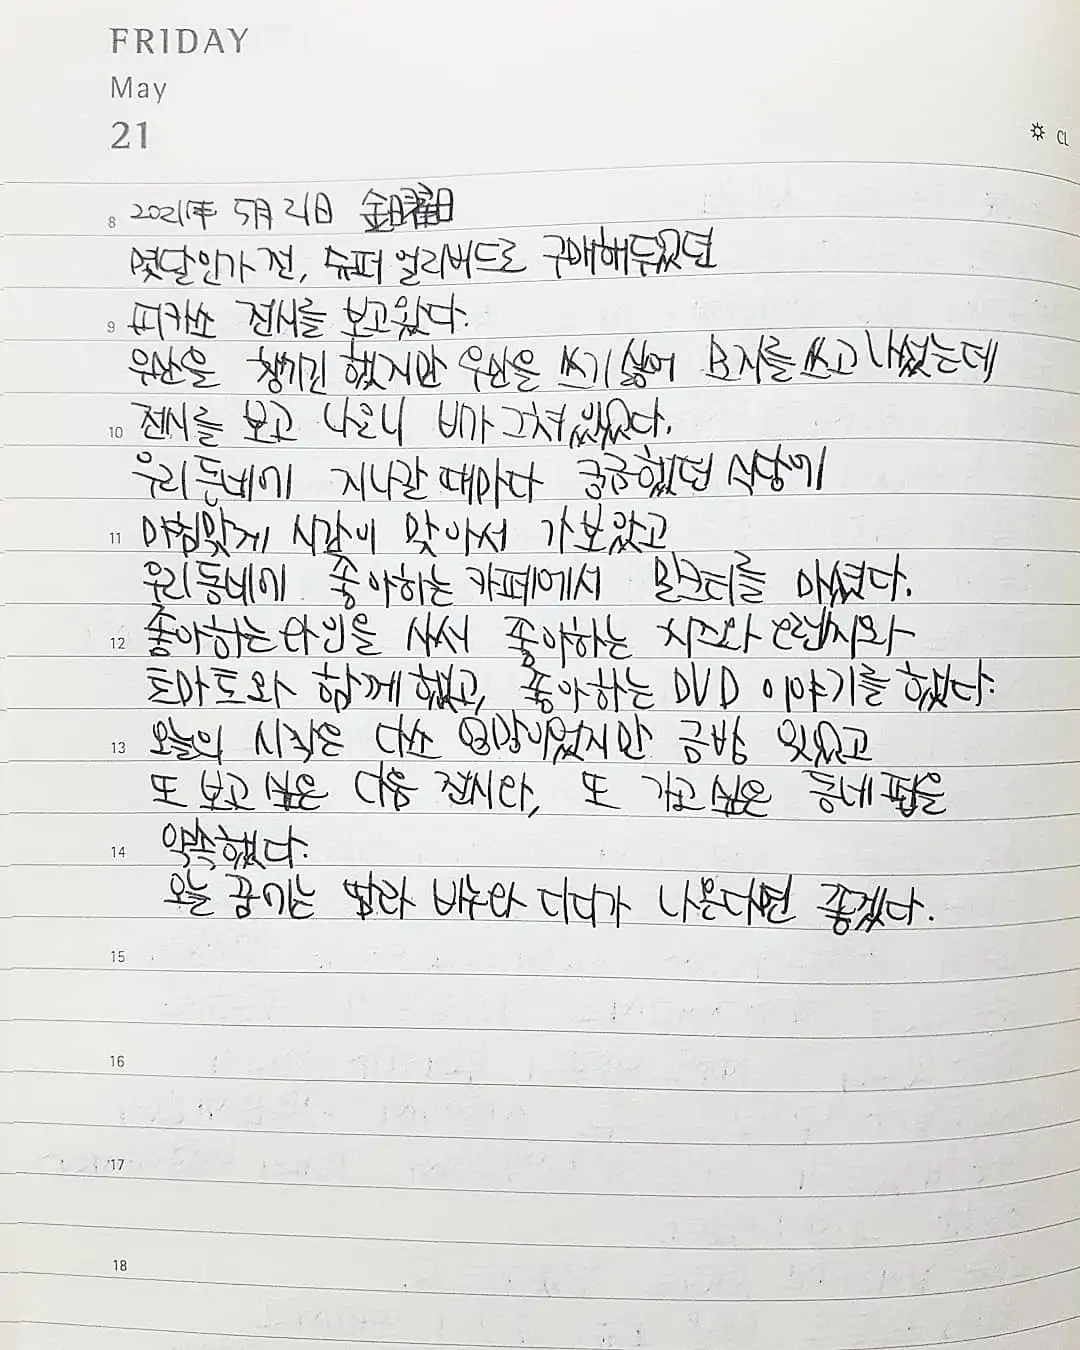 FRIDAY
May
21
CL
8 2021年 5月 21日 金曜日
몇달인가 전, 슈퍼 얼리버드로 구매해두었던
9 피카소 전시를 보고 왔다.
우산을 챙기긴 했지만 우산을 쓰기 싫어 모자를 쓰고 나섰는데
10 전시를 보고 나오니 비가 그쳐있었다.
우리동네에 지나갈 때마다 궁금했던 식당에
11 마침맞게 시간이 맞아서 가보았고
우리동네에 좋아하는 카페에서 밀크티를 마셨다.
12 좋아하는 와인을 사서 좋아하는 치즈와 오렌지와
토마토와 함께했고, 좋아하는 DVD 이야기를 했다.
13 오늘의 시작은 다소 엉망이었지만 금방 웃었고
또 보고 싶은 다음 전시랑, 또 가고 싶은 동네 펍을
14 약속했다.
오늘 꿈에는 나온다면 좋겠다.
15
16
17
18